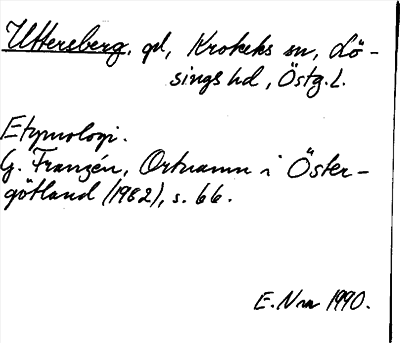 Uttersberg, gd, Krokeks sn, Lö-
sings hd, Östg. L.
Etymologi.
G. Franzén, Ortnamn i Öster-
götland (1982), s. 66.
E. Nm 1990.